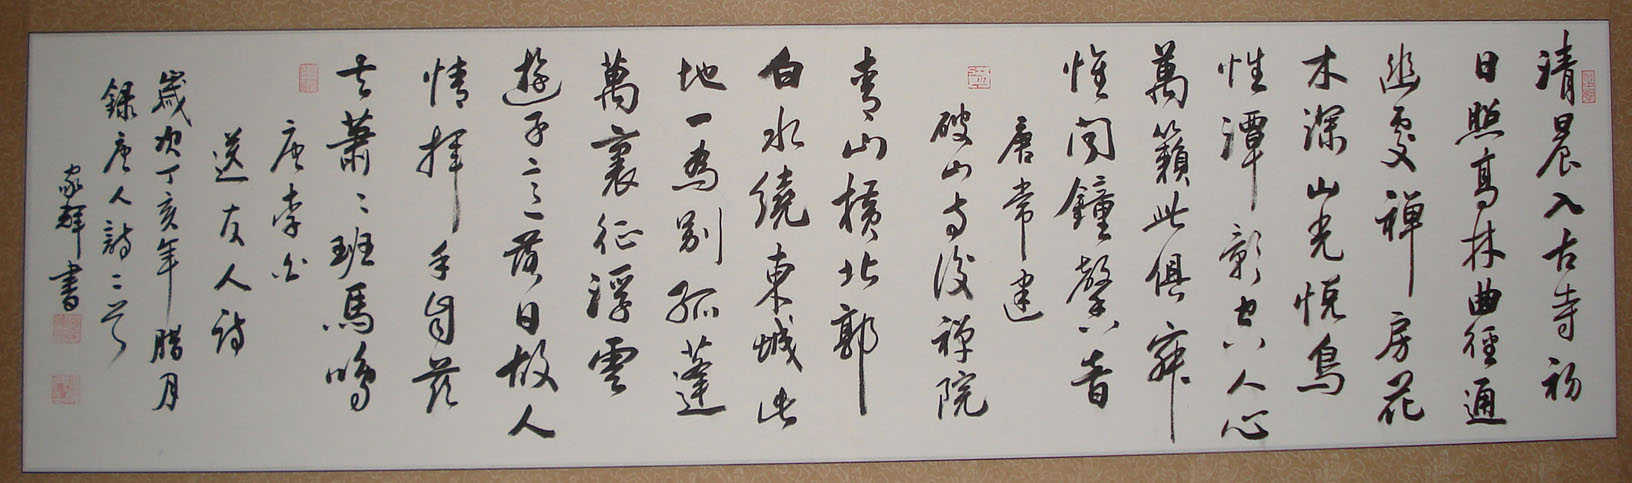 清晨入古寺初
日照高林曲徑通
幽處禪房花
木深山光悦鳥
性潭影空人心
萬籟此俱寂
惟聞鐘磬音
唐常建
破山寺後禅院
青山橫北郭
白水繞東城此
地一為別孤蓬
萬裏征浮雲
遊子意落日故人
情揮手自茲
去蕭〻班馬鳴
唐李白
送友人詩
歲次丁亥年腊月
錄唐人詩二首
家輝書